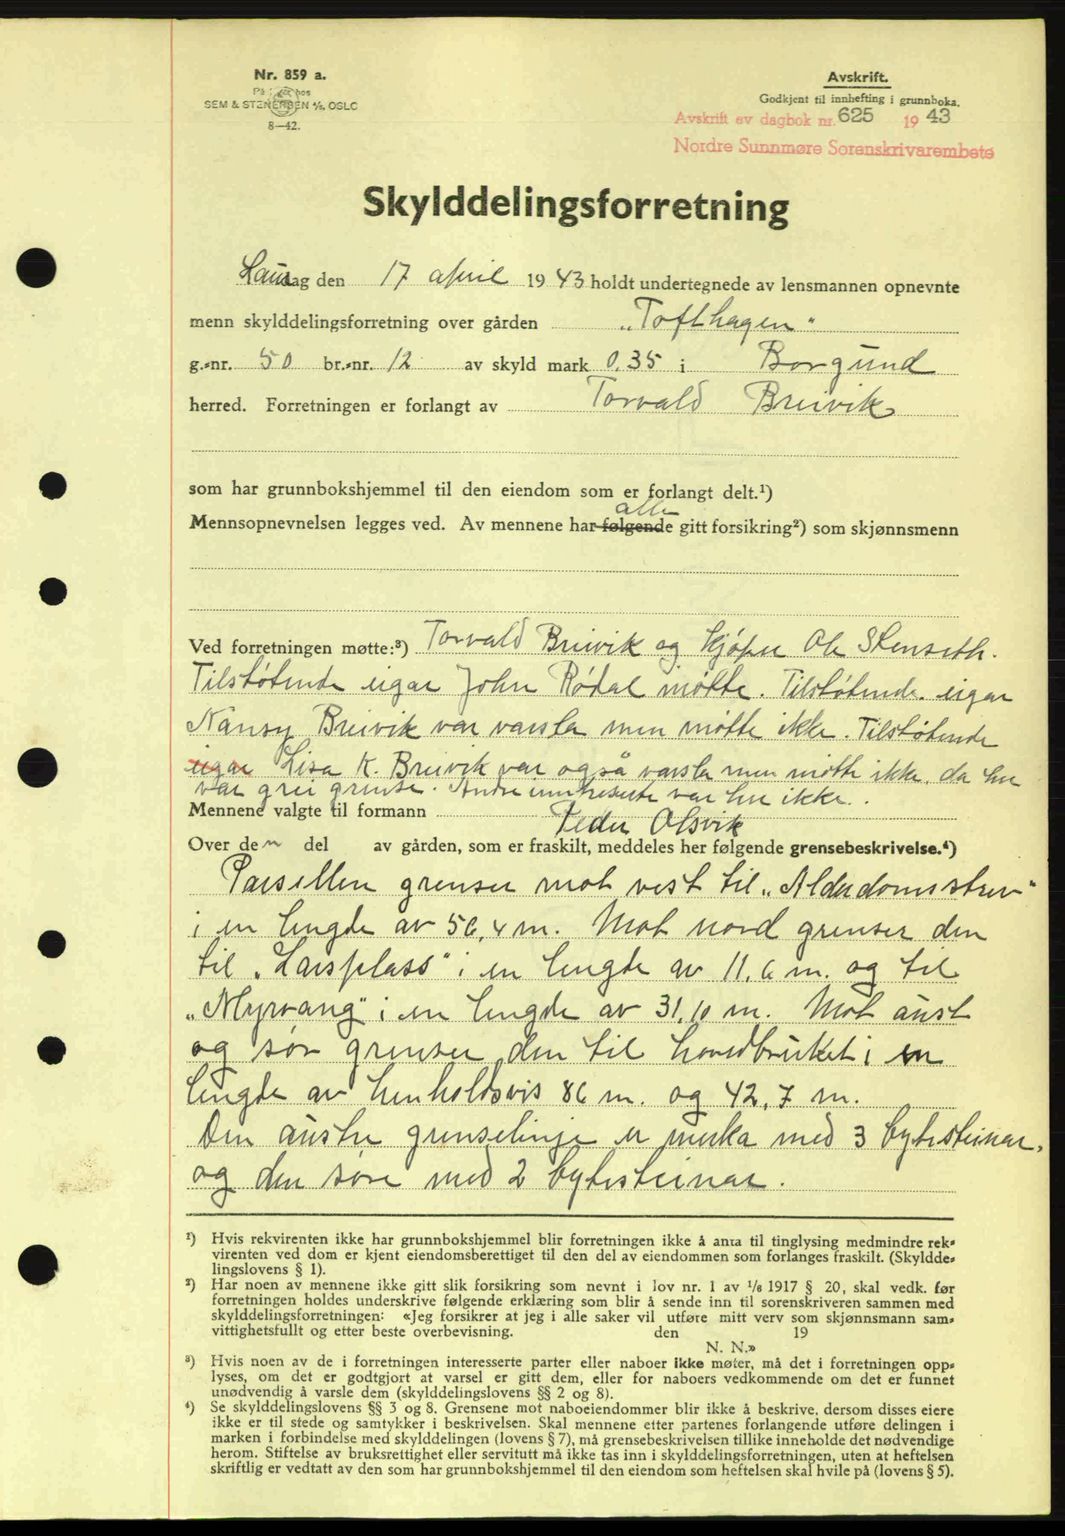 Nr. 859 a.
SEM & STENERSEN A/S, OSLO
8—42.
Avskrift.
Godkjent til innhefting i grunnboka.
Avskrift av dagbok nr. 625 1943
Nordre Sunnmøre Sorenskrivarembete
Skylddelingsforretning
Laurdag den 17 april 1943 holdt undertegnede av lensmannen opnevnte
menn skylddelingsforretning over gården „Tofthagen“
g.-nr. 50 br.-nr. 12 av skyld mark 0,35 i Borgund
herred. Forretningen er forlangt av Torvald Breivik
som har grunnbokshjemmel til den eiendom som er forlangt delt.¹)
alle
Mennsopnevnelsen legges ved. Av mennene har følgende gitt forsikring²) som skjønnsmenn
Ved forretningen møtte:³) Torvald Breivik og kjøper Ole Stenseth.
Tilstøtende eigar John Rødal møtte. Tilstøtende eigar
Nansy Breivik var varsla men møtte ikke. Tilstøtende
eigar Lisa K. Breivik var også varsla men møtte ikke, da hu
var grei grense. Andre var hu ikke.
Mennene valgte til formann Peder Olsvik
Over den del av gården, som er fraskilt, meddeles her følgende grensebeskrivelse.⁴)
Parsellen grenser mot vest til „Alderdomsstrev“
i en lengde av 56,4 m. Mot nord grenser den
til „Larsplass“ i en lengde av 11,6 m. og til
„Myrvang“ i en lengde av 31,10 m. Mot aust
og sør grenser den til hovedbruket i en
lengde av henholdsvis 86 m. og 42,7 m.
Den austre grenselinje er merka med 3 bytesteinar,
og den søre med 2 bytesteinar.
¹) Hvis rekvirenten ikke har grunnbokshjemmel blir forretningen ikke å anta til tinglysing medmindre rek-
virenten ved dom er kjent eiendomsberettiget til den del av eiendommen som forlanges fraskilt. (Skyldde-
lingslovens § 1).
²) Har noen av mennene ikke gitt slik forsikring som nevnt i lov nr. 1 av ¹/₆ 1917 § 20, skal vedk. før
forretningen holdes underskrive følgende erklæring som blir å sende inn til sorenskriveren sammen med
skylddelingsforretningen: «Jeg forsikrer at jeg i alle saker vil utføre mitt verv som skjønnsmann sam-
vittighetsfullt og etter beste overbevisning. den 19
N. N.»
³) Hvis noen av de i forretningen interesserte parter eller naboer ikke møter, må det i forretningen opp-
lyses, om det er godtgjort at varsel er gitt dem, eller for naboers vedkommende om det er funnet
unødvendig å varsle dem (skylddelingslovens §§ 2 og 8).
⁴) Se skylddelingslovens §§ 3 og 8. Grensene mot naboeiendommer blir ikke å beskrive, dersom disses eiere
ikke er til stede og samtykker i beskrivelsen. Skal mennene etter partenes forlangende utføre delingen i
marken i forbindelse med skylddelingen (lovens § 7), må grensebeskrivelsen tillike inneholde det nødvendige
herom. Stiftelse av bruksrettighet eller servitutt må ikke tas inn i skylddelingsforretningen, uten at heftelsen
skriftlig er vedtatt av den som har grunnbokshjemmel til den eiendom som heftelsen skal hvile på (lovens § 5).